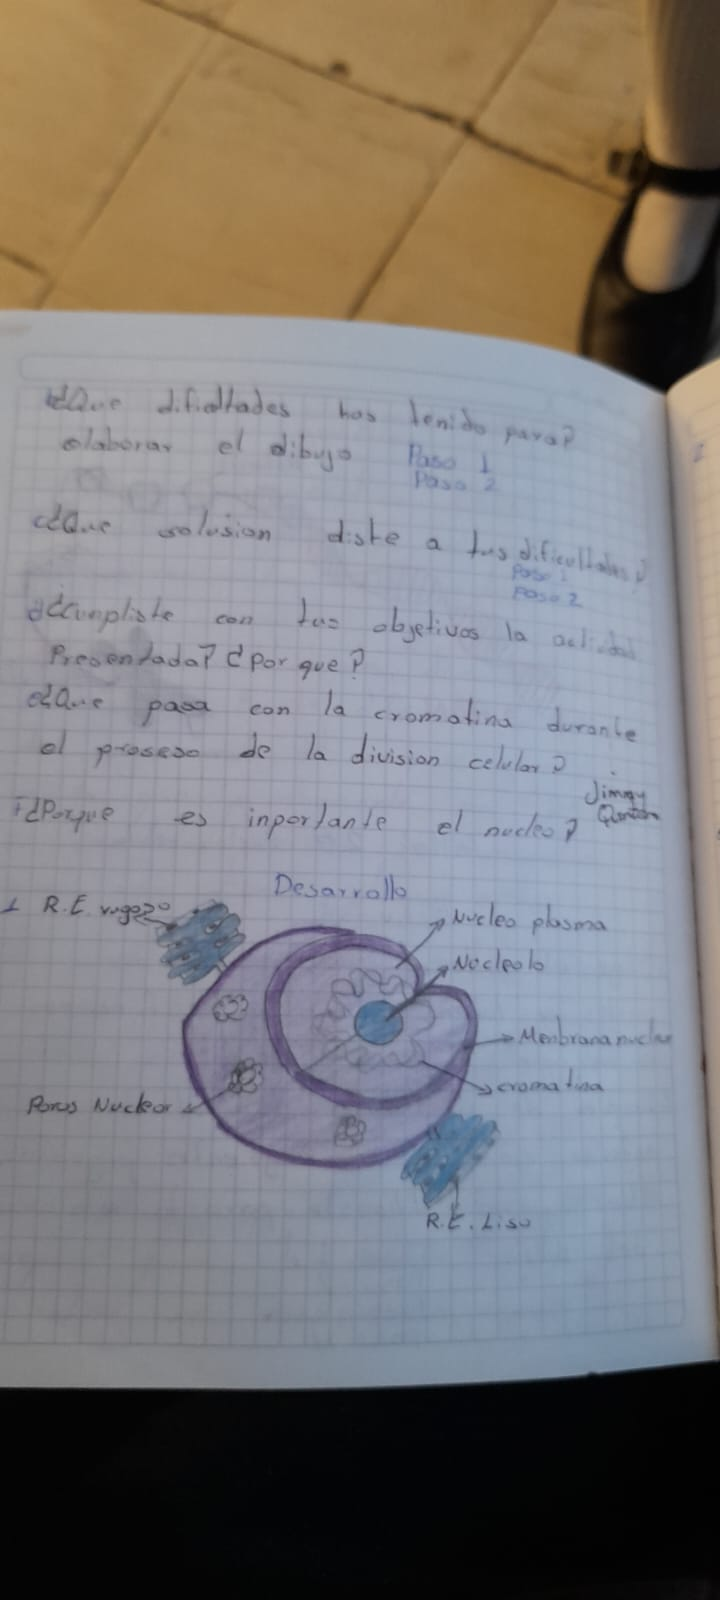 b¿Que dificltades has tenido para?
elaborar el dibujo Paso 1
Paso 2
c¿Que solusion diste a tus dificultades?
Paso 1
Paso 2
d¿Cumpliste con tus objetivos la actividad
Presentada? ¿Por que?
e¿Que pasa con la cromatina durante
el proseso de la division celular?
Jimmy
f¿Porque es inportante el nucleo?
Desarrollo
R.E. rugozo
Nucleo plasma
Nucleolo
Menbrana nuclear
cromatina
Poros Nuclear
R.E. Liso